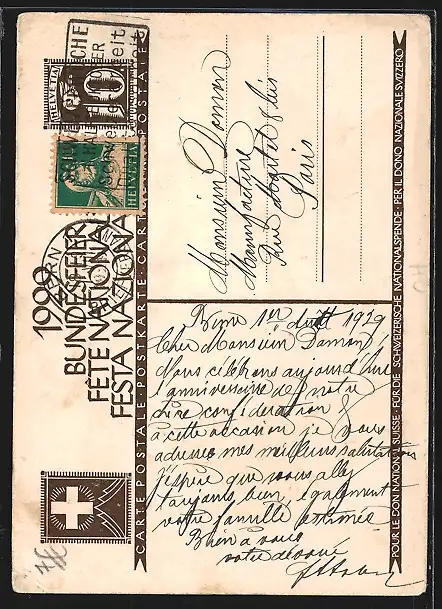 CHE
ER
eit
HELVETIA
10
HELVETIA
BERN
1929
BUNDESFEIER
FÊTE NATIONALE
FESTA NAZIONALE
CARTE POSTALE · POSTKARTE · CARTOLINA POSTALE
Monsieur Domon
Manufacture
Rue Martel & fils
Paris
Berne 1er Août 1929
Cher Monsieur Damon!
Nous célébrons aujourd'hui
l'anniversaire de notre
confédération &
à cette occasion je vous
adresse mes meilleurs salutations
J'espère que vous allez
toujours bien, également
votre famille estimée.
Bien à vous
votre dévoué
POUR LE DON NATIONAL SUISSE · FÜR DIE SCHWEIZERISCHE NATIONALSPENDE · PER IL DONO NAZIONALE SVIZZERO